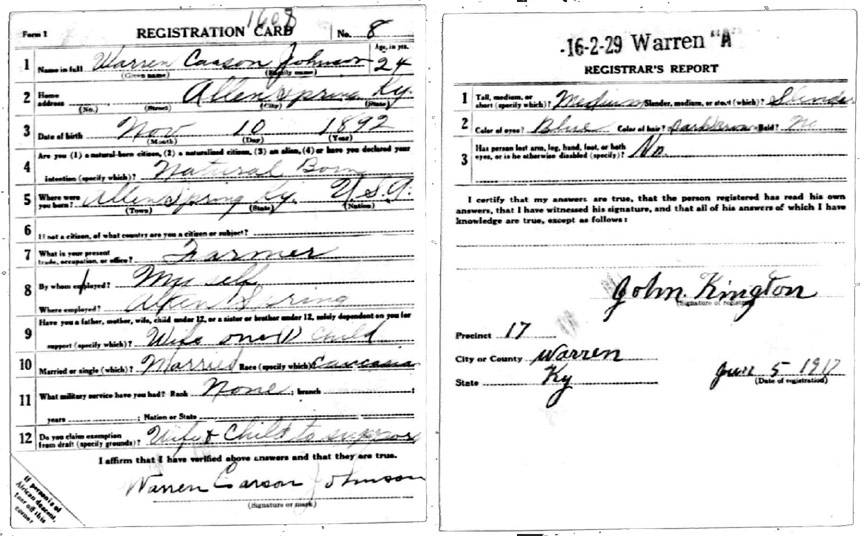 1608
Form 1 REGISTRATION CARD No. 8
1 Name in full Warren Carson Johnson Age, in yrs. 24
(Given name) (Family name)
2 Home address Allen Spring Ky.
(No.) (Street) (City) (State)
3 Date of birth Nov 10 1892
(Month) (Day) (Year)
4 Are you (1) a natural-born citizen, (2) a naturalized citizen, (3) an alien, (4) or have you declared your
intention (specify which)? Natural Born
5 Where were you born? Allen Spring Ky. U.S.A.
(Town) (State) (Nation)
6 If not a citizen, of what country are you a citizen or subject?
7 What is your present trade, occupation, or office? Farmer
8 By whom employed? My self
Where employed? Allen Spring
9 Have you a father, mother, wife, child under 12, or a sister or brother under 12, solely dependent on you for
support (specify which)? Wife one (1) Child
10 Married or single (which)? Married Race (specify which)? Caucasia
11 What military service have you had? Rank None ; branch ;
years ; Nation or State
12 Do you claim exemption from draft (specify grounds)? Wife & Child to support
I affirm that I have verified above answers and that they are true.
Warren Carson Johnson
(Signature or mark)
If person is of
African descent,
tear off this
corner
16-2-29 Warren "A"
REGISTRAR'S REPORT
1 Tall, medium, or short (specify which)? Medium Slender, medium, or stout (which)? Slender
2 Color of eyes? Blue Color of hair? Dark Brown Bald? No
3 Has person lost arm, leg, hand, foot, or both
eyes, or is he otherwise disabled (specify)? No.
I certify that my answers are true, that the person registered has read his own
answers, that I have witnessed his signature, and that all of his answers of which I have
knowledge are true, except as follows:
John. Kington
(Signature of registrar)
Precinct 17
City or County Warren
State Ky
June 5 1917
(Date of registration)